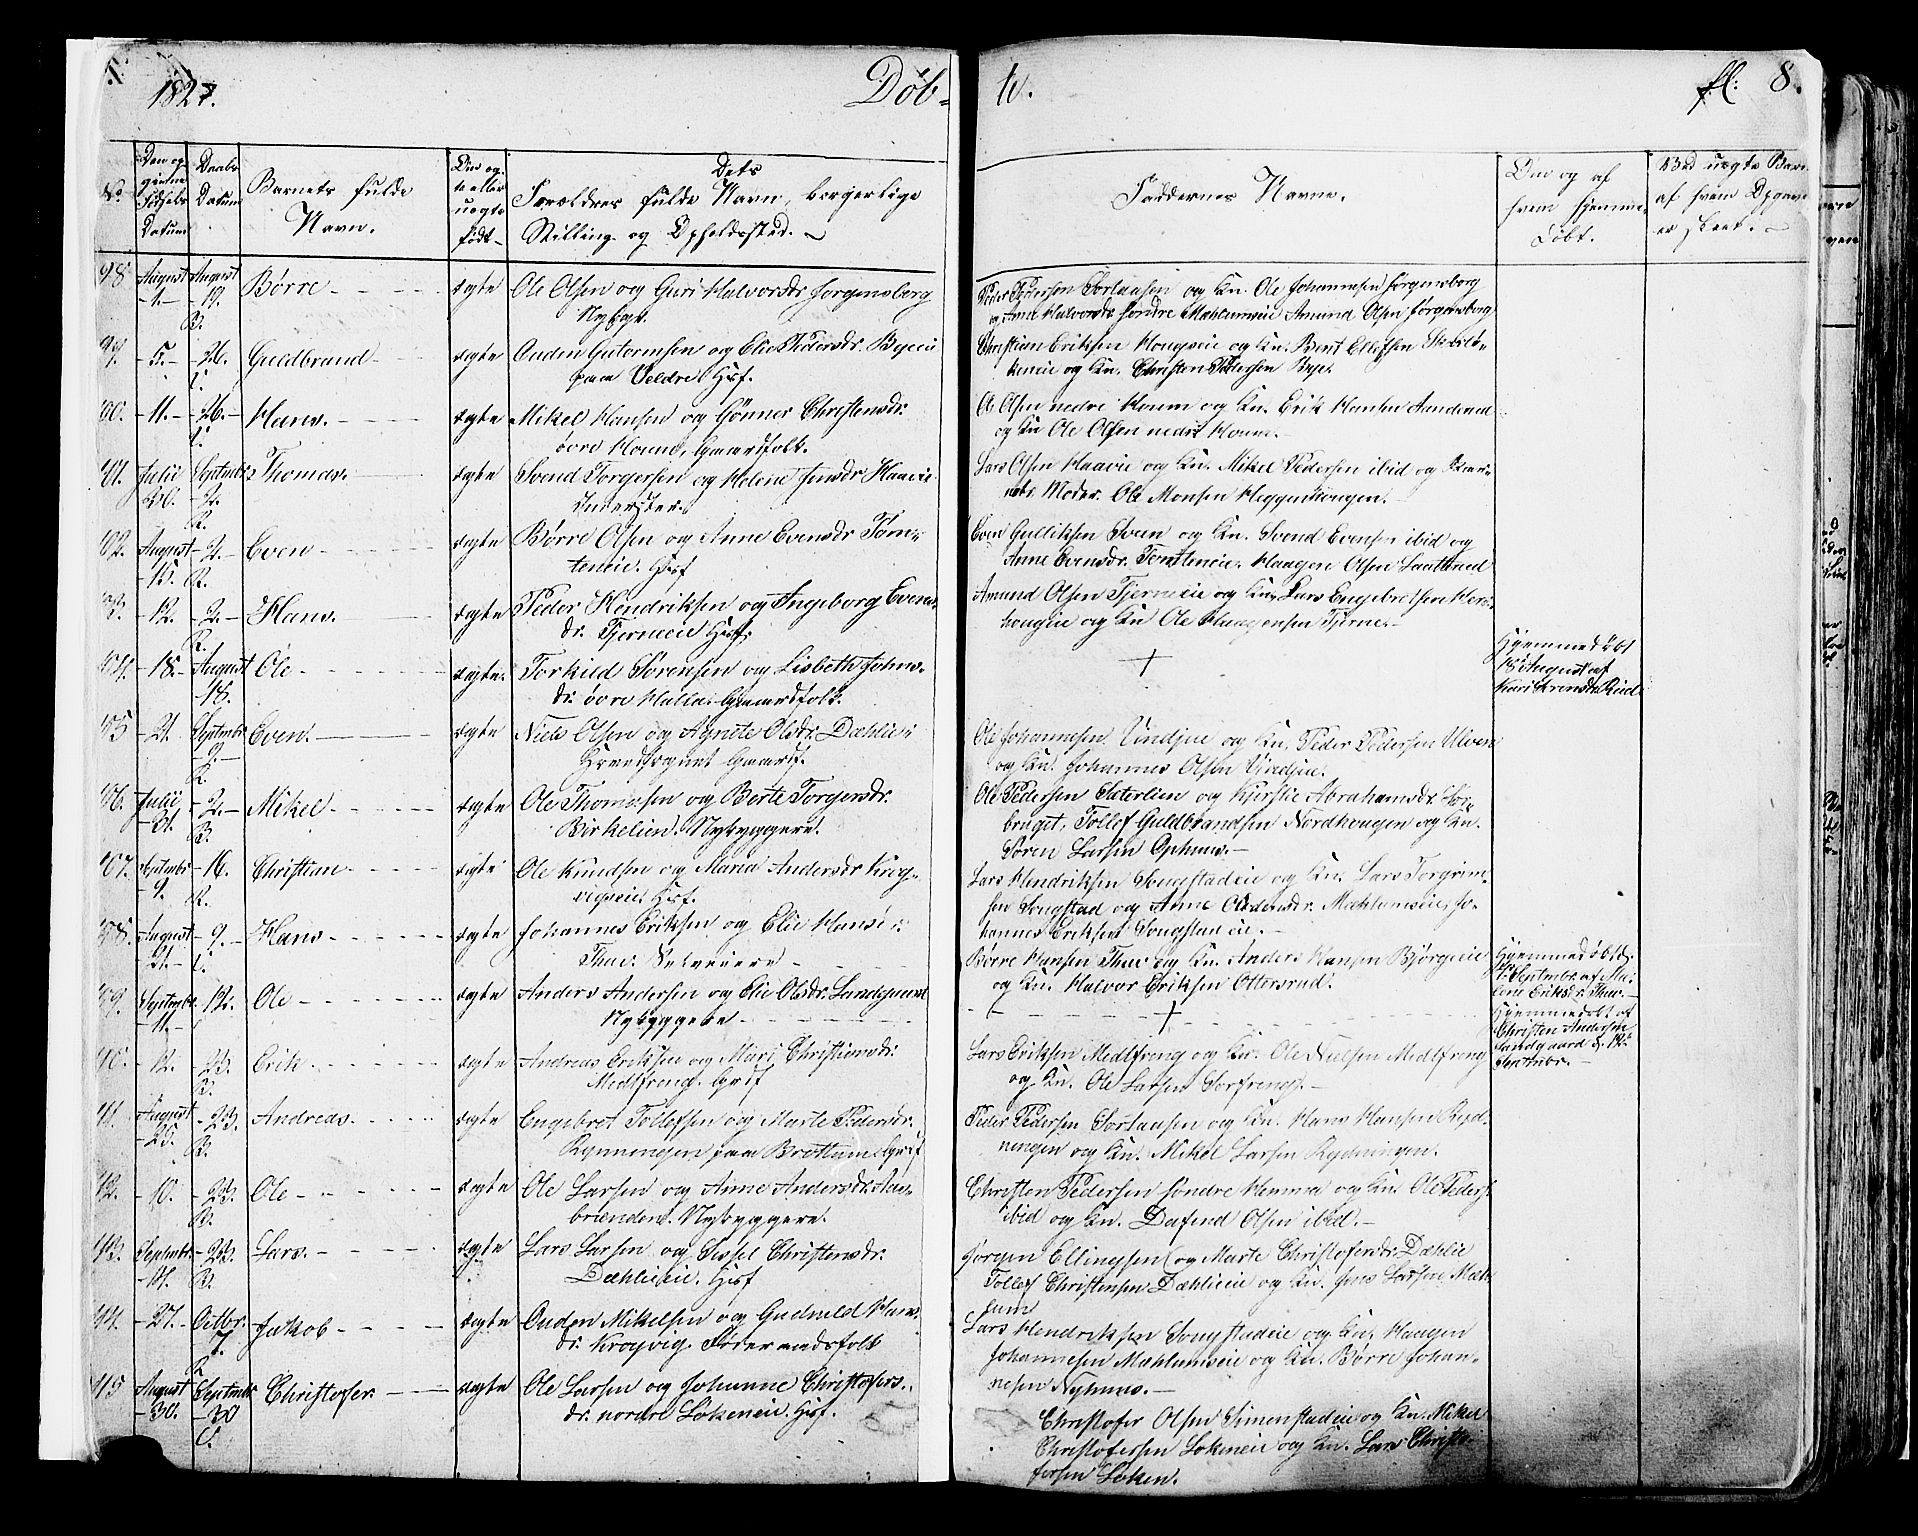 1827.
Døb-
te.
fl: 8.
No.
Den og
Fødsels
Datum
Daabs
Datum
Barnets fulde
Navn.
Om æg-
te eller
uægte
født
Dets
Forældres fulde Navn, borgerlige
Stilling og Opholdssted.
Faddernes Navne.
Om og af
hvem hjemme-
døbt.
Ved uægte
af hvem Opgave
er skeet.
98. August August Børre ægte Ole Olsen og Guri Halvorsdr Jorgensborg
1. 19.
R. Nybygr.
Peder Pedersen Sorlausen og Kn. Ole Johannesen Jorgensborg
og Anne Halvorsdr søndre Mæhlumseie Amund Olsen Jorgensborg
99. 5. 26. Guldbrand ægte Ouden Gutormsen og Elie Pedersdr. Byeeie
paa Veldre Husf.
Christian Eriksen Hougseie og Kn. Bent Ellefsen
og Kn. Christen Pedersen Bye.
11. 26. Hans. ægte Mikel Hansen og Gönner Christensdr.
övre Houm, Gaardfolk.
Ole Olsen nedre Houm og Kn. Erik Hansen
og Kn Ole Olsen nedre Houm.
Julii Septembr Thomas. ægte Svend Torgersen og Helene Jensdr Haavie
2.
R. Inderster.
Lars Olsen Haavie og Kn. Mikel Pedersen ibid og Bar-
nets Moder. Ole Monsen Heggenhougen.
02. August 2. Even ægte Børre Olsen og Anne Evensdr Tom-
15. R. teneie. Husf
Even Gulliksen Sveen og Kn. Svend Evensen ibid og
Anne Evensdr. Tomteneie. Haagen Olsen
12. 2. Hans. ægte Peder Hendriksen og Ingeborg Evens-
R. dr. Tjerneeie Husf.
Amund Olsen Tjerneeie og Kn. Lars Engebretsen
hougeie og Kn Ole Haagensen Tjerne.
18. August Ole ægte. Torkild Sörensen og Lisbeth Johns-
18. dr. övre Halla. Gaardfolk.
+
Hjemmedöbt
18 August af
Kari Arensdr Rud
21. Septembr Even. ægte Niels Olsen og Agnete Olsdr. Dæhlie i
9.
R.
Ole Johannesen Vindjue og Kn. Peder Pedersen Ulven
og Kn. Johannes Olsen Vindjue.
06. Julii 2. Mikel ægte Ole Thomesen og Berte Torgersdr.
31. R. Birkelien. Nybyggere.
Ole Pedersen Saterlien og Kjerstie Abrahamsdr.
bruget, Tollef Guldbrandsen Nordhougen og Kn.
Sören Larsen Ophuus.
07. Septembr 16. Christian ægte Ole Knudsen og Maria Andersdr Krog-
9. R. vigseie. Husf.
Lars Hendriksen Songstadeie og Kn. Lars Torgrim-
sen Songstad og Anne Oudensdr. Mæhlumseie, Jo-
hannes Eriksen Songstadeie.
08. August 9. Hans ægte Johannes Eriksen og Elie Hans
31. Thue. Selveiere
Børre Hansen Thue og Kn. Anders Hansen Björgeeie
og Kn. Halvor Eriksen Ottersrud.
Hjemmedöbt d.
Septembr. af
Eriksdr. Thue.
09. Septembr 12. Ole ægte Anders Andersen og Elie Olsdr. Landgaard
11. Nybyggere
+
Hjemmedöbt af
Christen Andersen
Landgaard d. 12
Septembr.
10. 12. 23. Erik ægte Andreas Eriksen og Mari Christiansdr.
R. Medlfreng. Grdf
Lars Eriksen Medlfreng og Kn. Ole Nielsen Medlfreng
og Kn. Ole Larsen Sorfreng.
11. August 23. Andreas. ægte Engebret Tollefsen og Marte Pedersdr.
25. R. Rynningen paa Brøttum Grdf
Peder Pedersen Sorlausen og Kn. Hans Hansen Ryd-
ningen og Kn. Mikel Larsen Rydningen.
12. 10. 23. Ole ægte Ole Larsen og Anne Andersdr. Aas-
R. brænden. Nybyggere.
Christen Pedersen söndre Hemma og Kn. Ole Peders
ibid og Kn. Dafind Olsen ibid.
13. Septembr 23. Lars. ægte Lars Larsen og Sissel Christensdr.
14. R. Dæhlieeie. Husf
Jörgen Ellingsen og Marte Christofersdr. Dæhlie
Tollef Christensen Dæhlieeie og Kn. Jens Larsen Mæh-
lum
14. 27. Octbr. Jakob ægte Ouden Mikelsen og Gudnild Hans-
7.
R. dr. Krogvig. Föderaadsfolk
Lars Hendriksen Songstadeie og Kn. Haagen
Johannesen Mæhlumseie og Kn. Børre Johan-
nesen Nyhuus.
15. August Septembr Christofer ægte Ole Larsen og Johanne Christofers-
30. 30 dr. nordre Lökeneie. Husf.
Christofer Olsen Simenstadeie og Kn. Mikel
Christofersen Lokeneie og Kn. Lars Christo-
fersen Loken.